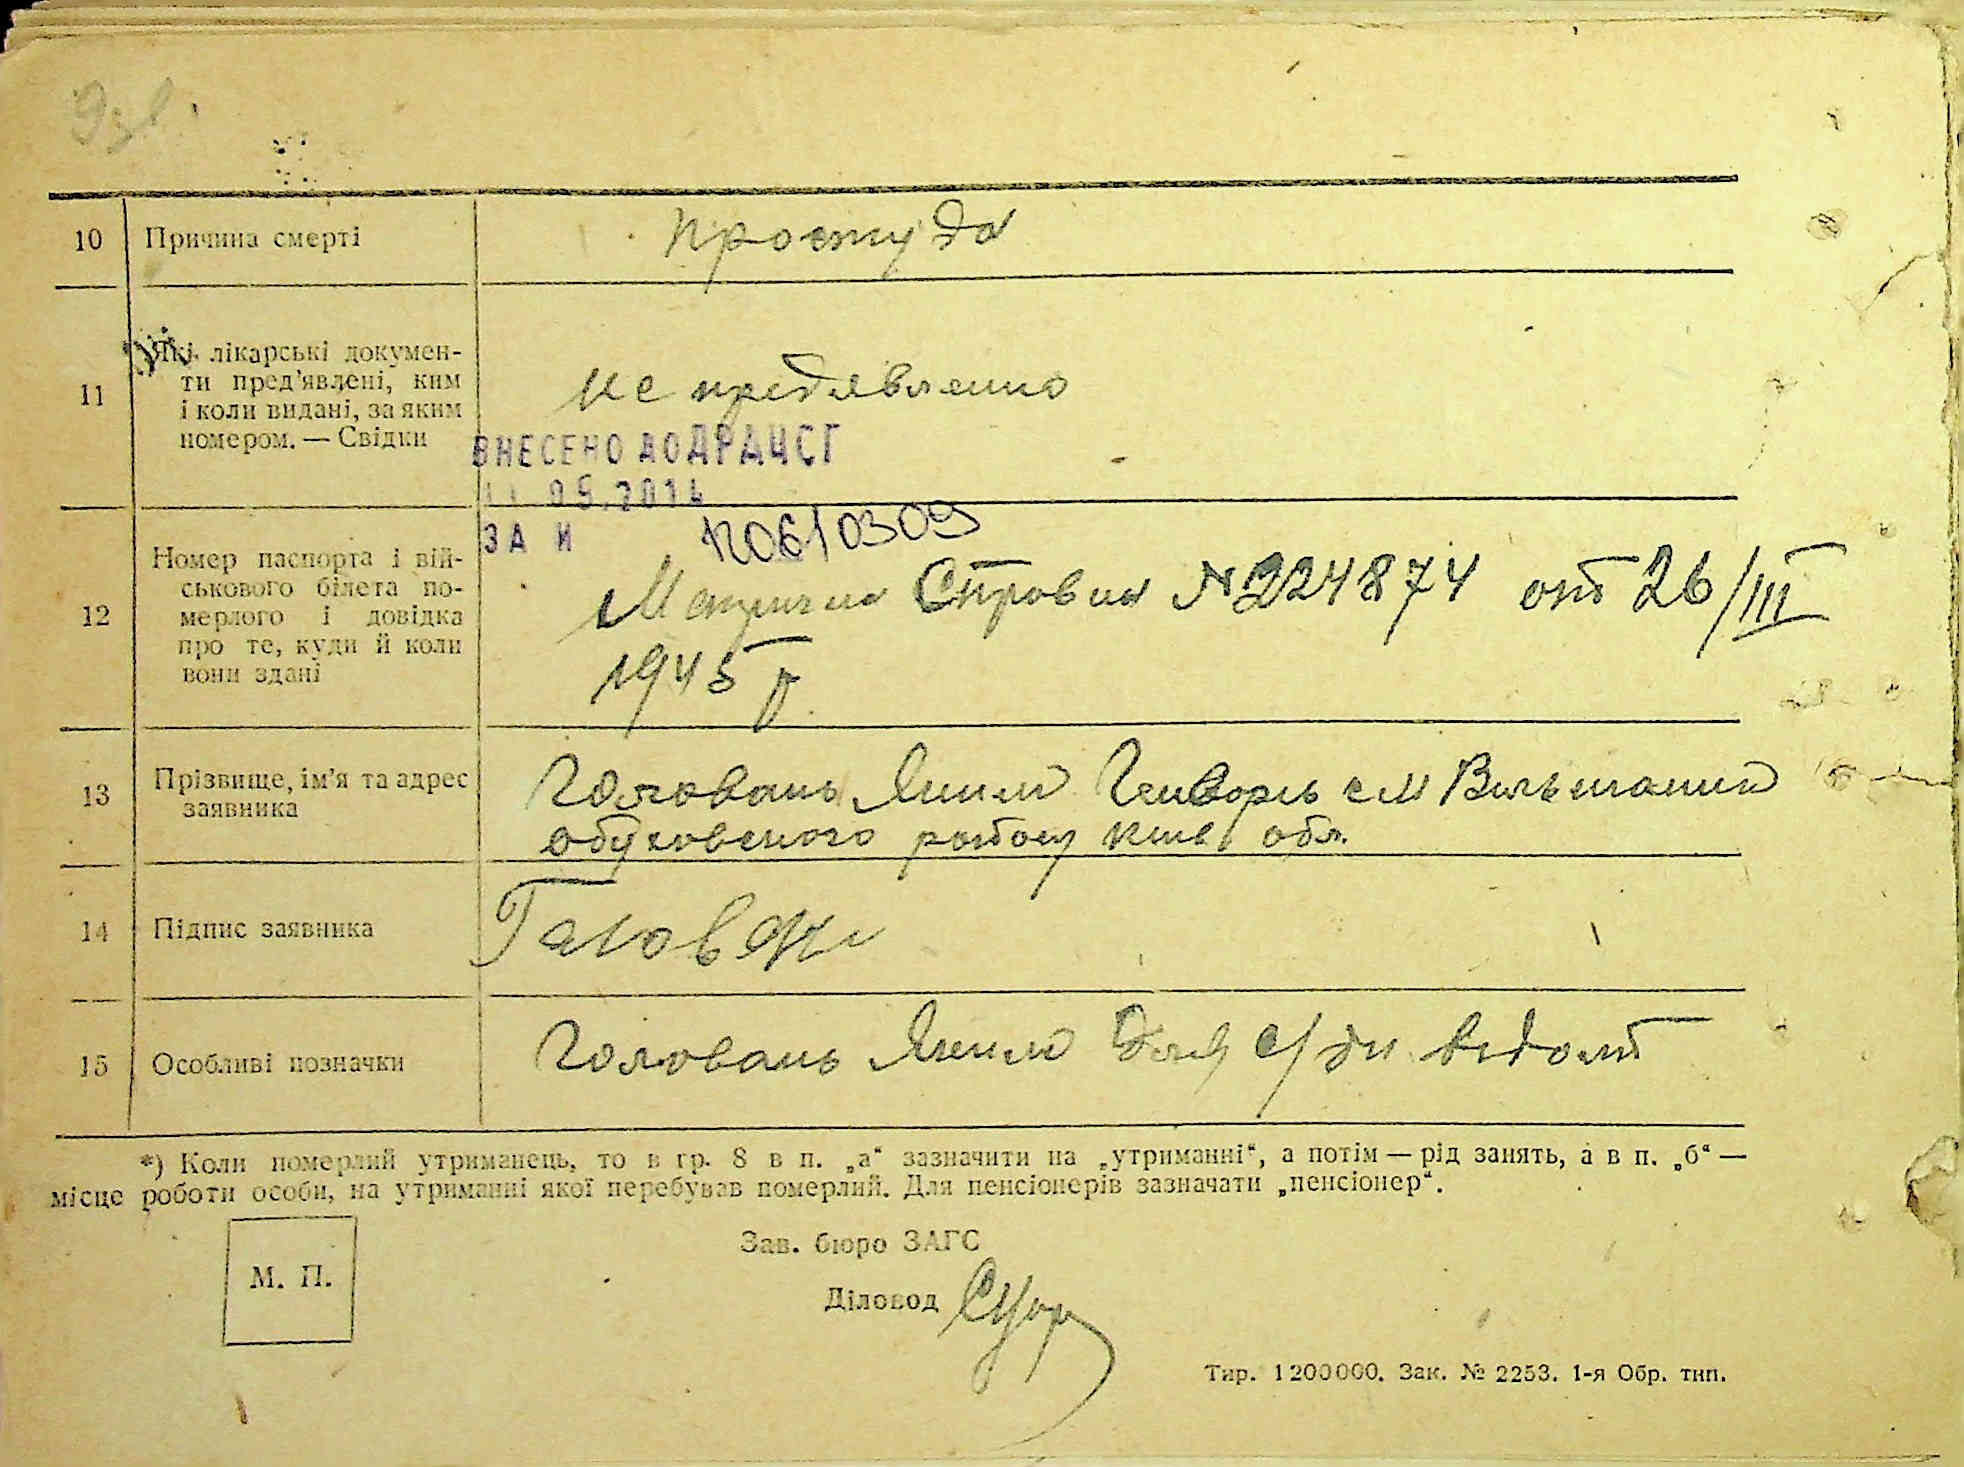 10 Причина смерті простуда
11 Які лікарські докумен-
ти пред'явлені, ким
і коли видані, за яким
номером. — Свідки
не предявлено
ВНЕСЕНО ДО ДРАЦСГ
05.2014
ЗА И 120610309
12 Номер паспорта і вій-
ськового білета по-
мерлого і довідка
про те, куди й коли
вони здані
Справка № 224874 от 26/III
1945 г.
13 Прізвище, ім'я та адрес
заявника
Головань с
обуховского району киев обл.
14 Підпис заявника
15 Особливі позначки Головань
*) Коли померлий утриманець, то в гр. 8 в п. „а“ зазначити на „утриманні“, а потім — рід занять, а в п. „б“ —
місце роботи особи, на утриманні якої перебував померлий. Для пенсіонерів зазначати „пенсіонер“.
Зав. бюро ЗАГС
М. П.
Діловод
Тир. 1200000. Зак. № 2253. 1-я Обр. тип.